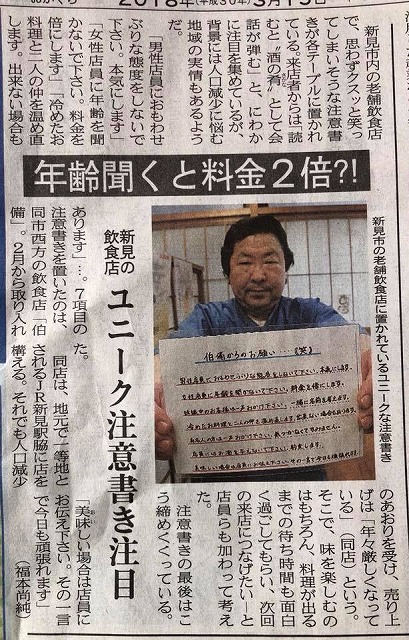 2018年(平成30年)3月15日
新見市内の老舗飲食店
で、思わずクスッと笑っ
てしまいそうな注意書
きが各テーブルに置かれ
ている。来店者からは「読
むと〝酒の肴〟として会
話が弾む」と、にわか
に注目を集めているが、
背景には人口減少に悩む
地域の実情もあるよう
だ。
「男性店員におもわせ
ぶりな態度をしないで
下さい。本気にします」
「女性店員に年齢を聞
かないで下さい。料金を
倍にします」「冷めたお
料理と二人の仲を温め直
します。出来ない場合も
年齢聞くと料金2倍?!
新見の
飲食店
ユニーク注意書き注目
新見市の老舗飲食店に置かれているユニークな注意書き
伯備からのお願い……(笑)
男性店員におもわせぶりな態度をしないで下さい。本気にします。
女性店員に年齢を聞かないで下さい。料金を倍にします。
冷めたお料理と二人の仲を温め直します。出来ない場合もあります。
あります」…。7項目の
注意書きを置いたのは、
同市西方の飲食店「伯
備」。2月から取り入れ
た。
同店は、地元で一等地と
されるJR新見駅脇に店を
構える。それでも人口減少
のあおりを受け、売り上
げは「年々厳しくなって
いる」(同店)という。
そこで、味を楽しむの
はもちろん、料理が出る
までの待ち時間も面白
く過ごしてもらい、次回
の来店につなげたい―と
店員らも加わって考え
た。
注意書きの最後はこ
う締めくくっている。
「美味しい場合は店員に
お伝え下さい。その一言
で今日も頑張れます」
(福本尚純)